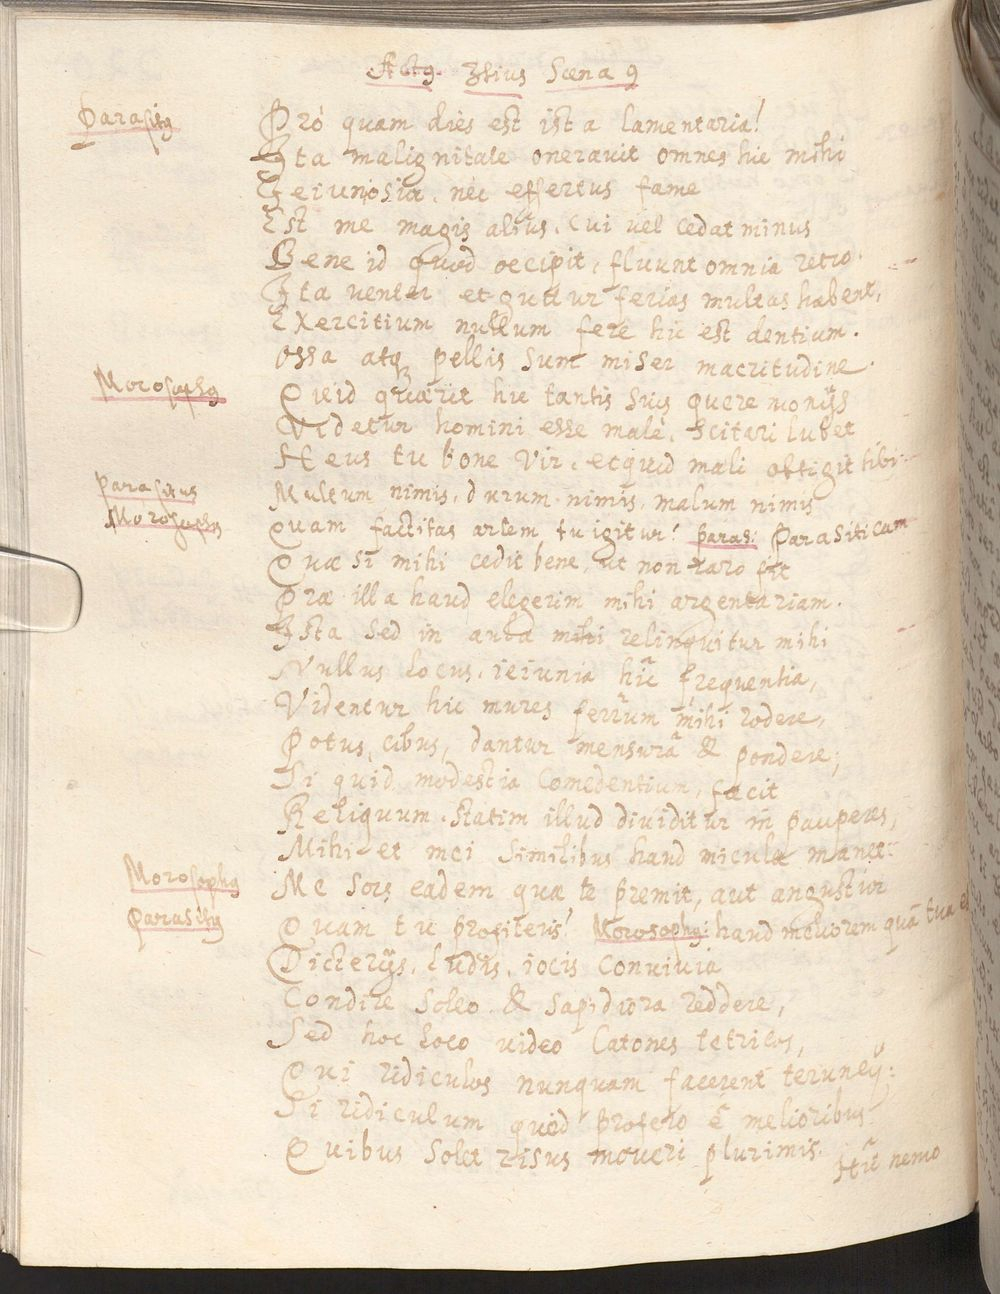 Actꝯ 3tius Scena 9
Parasitꝯ Pró quam dies est ista lamentaria!
Ita malignitate oneravit omnes hic mihi
Ieiuniosior, nec effertus fame
Est me magis alius, Cui vel cedat minus
Bene id quod occipit, fluunt omnia retro.
Ita venter et guttur ferias multas habent,
Exercitium nullum fere hic est dentium.
Ossa atq pellis sum miser macritudine.
Morosophꝯ Quid quærit hic tantis suis queremonijs
Videtur homini esse malé, scitari lubet
Heus tu bone Vir, ecquid mali obtigit tibi.
Parasitus Multum nimis, durum nimis, malum nimis
Morosophꝯ Quam factitas artem tu igitur? Paras: Parasiticam
Quæ si mihi cedit bene, ut non raro fit
Præ illa haud elegerim mihi argentariam.
Ista sed in aula mihi relinquitur mihi
Nullus locus, ieiunia hic frequentia,
Videntur hic mures ferrum mihi rodere,
Potus, cibus, dantur mensurâ & pondere;
Si quid modestia Comedentium, facit
Reliquum. Statim illud dividitur in pauperes,
Mihi et mei similibus haud micula manet.
Morosophꝯ Me Sors eadem quæ te premit, aut angustior
Parasitꝯ Quam tu profiteris? Morosophꝯ: haud meliorem quâ tua
Dicterijs, ludis, iocis Convivia
Condire soleo & sapidiora reddere,
Sed hoc loco video Catones tetricos,
Qui ridiculos nunquam facerent teruncij:
Si ridiculum quod profero é melioribus
Quibus solet risus moveri plurimis.
Hîc nemo